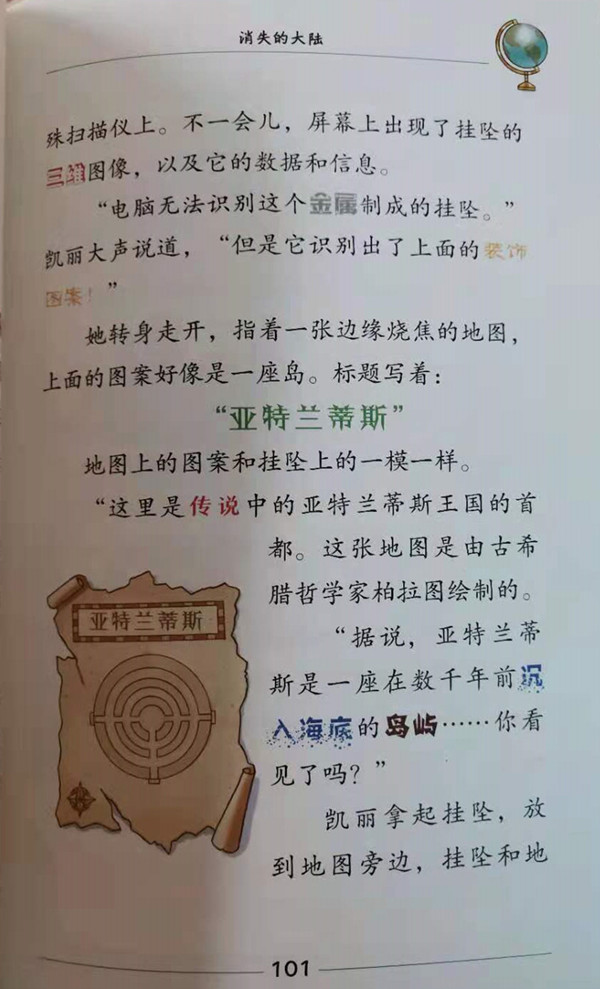 消失的大陆
殊扫描仪上。不一会儿，屏幕上出现了挂坠的
三维图像，以及它的数据和信息。
“电脑无法识别这个金属制成的挂坠。”
凯丽大声说道，“但是它识别出了上面的装饰
图案！”
她转身走开，指着一张边缘烧焦的地图，
上面的图案好像是一座岛。标题写着：
“亚特兰蒂斯”
地图上的图案和挂坠上的一模一样。
“这里是传说中的亚特兰蒂斯王国的首
都。这张地图是由古希
腊哲学家柏拉图绘制的。
“据说，亚特兰蒂
斯是一座在数千年前沉
入海底的岛屿……你看
见了吗？”
凯丽拿起挂坠，放
到地图旁边，挂坠和地
亚特兰蒂斯
101